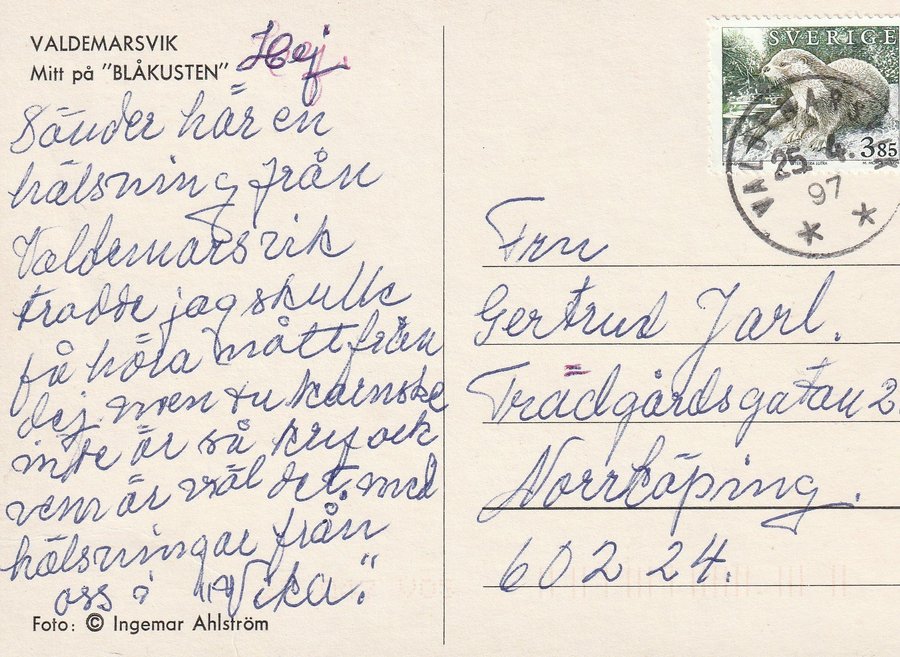 VALDEMARSVIK
Mitt på "BLÅKUSTEN"
Hej.
Sänder här en
hälsning från
Valdemarsvik
trodde jag skulle
få höra nått från
dej. men du kanske
inte är så kry ock
vem är väl det. med
hälsningar från
oss i "Vika".
Foto: © Ingemar Ahlström
SVERIGE
3 85
VALDEMARS
25 4.
97
Fru
Gertrud Jarl.
Trädgårdsgatan 2
Norrköping.
602 24.